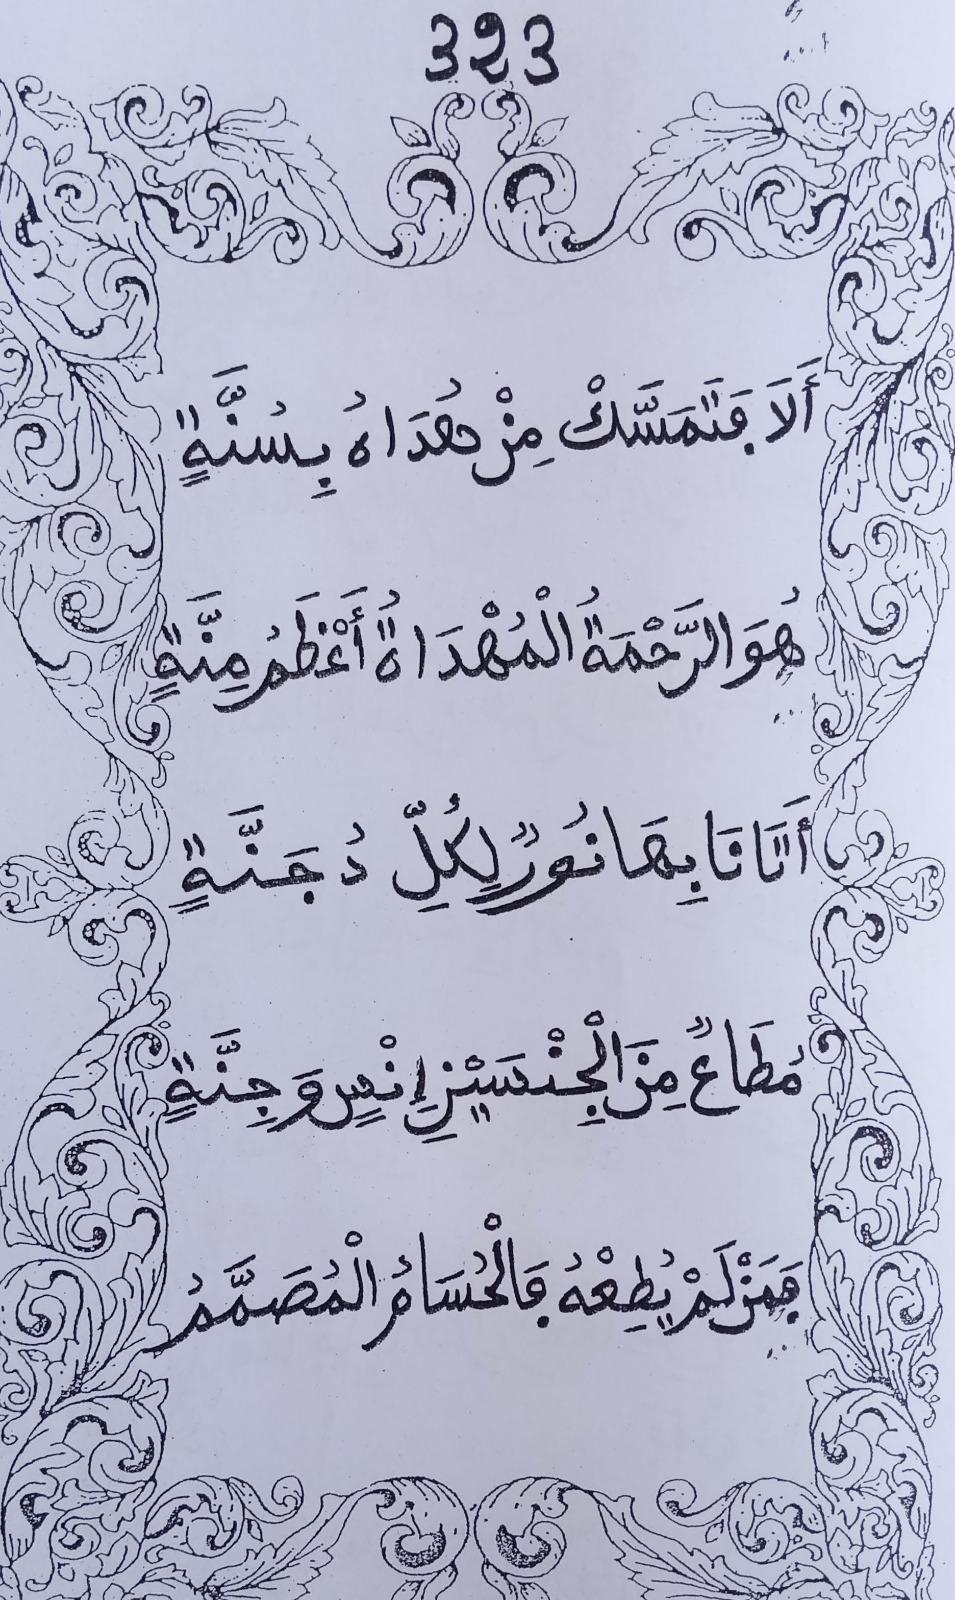 323
أَلَا فَتَمَسَّكْ مِنْ هُدَاهُ بِسُنَّةٍ
هُوَ الرَّحْمَةُ الْمُهْدَاةُ أَعْظَمُ مِنَّةٍ
أَتَانَا بِهَا نُورٌ لِكُلِّ دُجَنَّةٍ
مُطَاعٌ مِنَ الْجِنْسَيْنِ إِنْسٍ وَجِنَّةٍ
فَمَنْ لَمْ يُطِعْهُ فَالْحُسَامُ الْمُصَمَّمُ